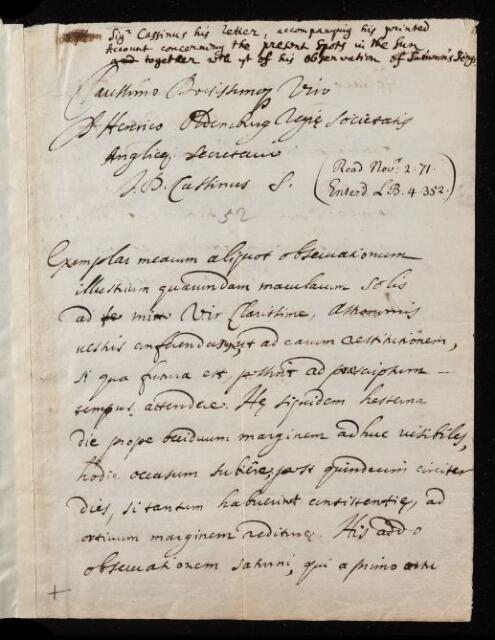 Sigr Cassinus his letter, accompanying his printed
Account concerning the present Spots in the Sun
and together wth yt of his observation of Saturn's Ring
Clarissimo Viro
D. Henrico Oldenburg Regiæ Societatis
Anglicę Secretario
J. D. Cassinus S.
(Read Novr. 2. 71.
Enterd L.B. 4. 352.)
52
Exemplar mearum aliquot observationum
illustrium quarumdam macularum Solis
ad te mitto Vir Clarissime, Astronomis
vestris conferendas, ut ad earum restitutionem,
si qua futura est possint ad præscriptum
tempus attendere. Hę siquidem hesterna
die prope occiduum marginem adhuc visibiles,
hodie occasum subiere, post quindecim circiter
dies, si tantum habuerint consistentię, ad
ortivum marginem rediturę. His addo
observationem Saturni, qui a primo